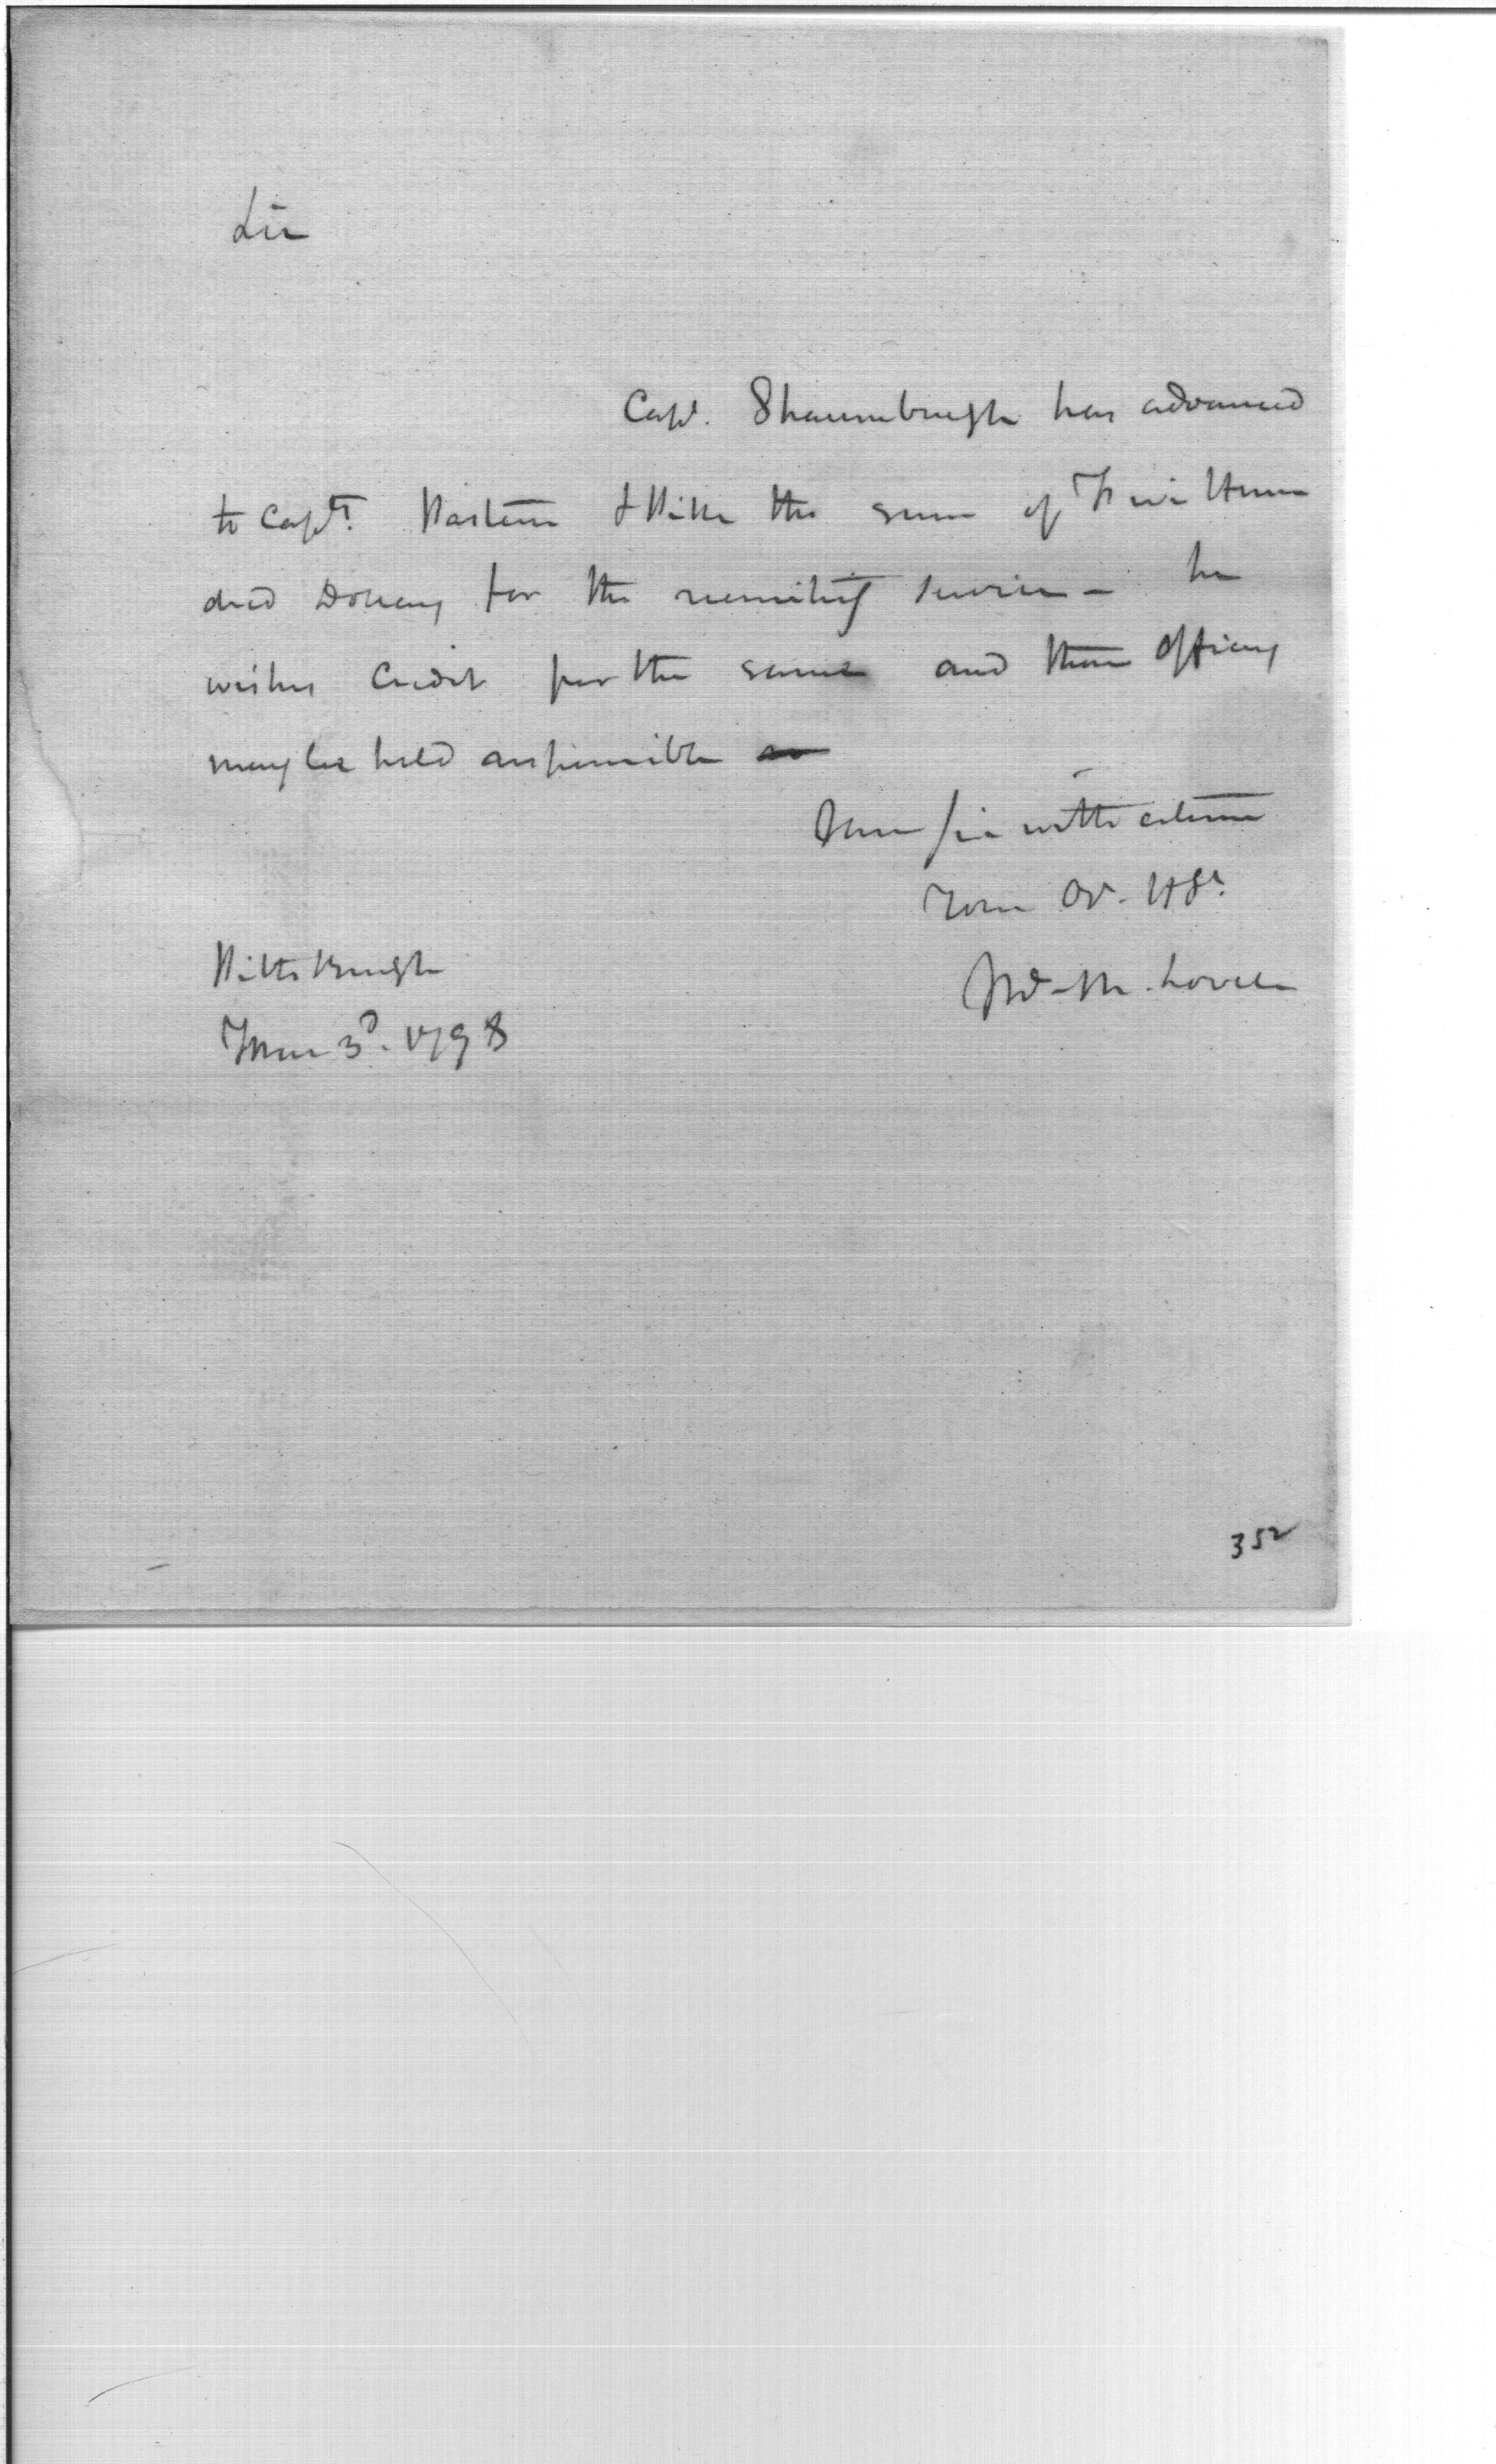 Sir
Capt. Shaumburgh has advanced
to Capts. Pasteur & Pike the sum of Five Hun
dred Dollars for the recruiting service - he
wishes Credit for the same and these officers
may be held responsible
I am sir with esteem
Your Ob. H Sr.
Jno. M. Lovell
Pittsburgh
June 3d. 1798
352